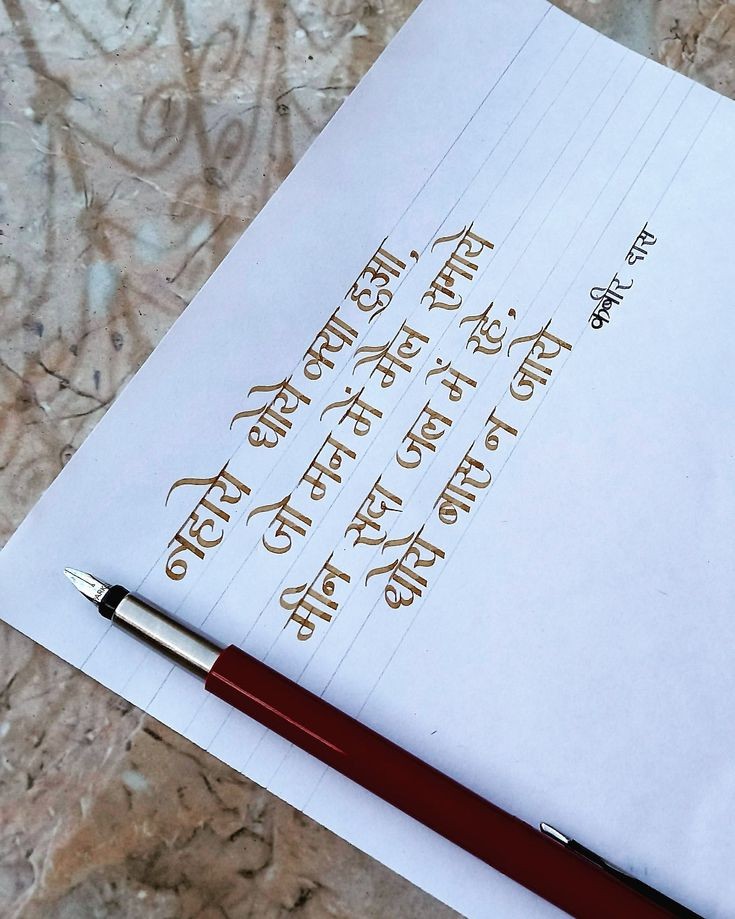 नहाये धोये क्या हुआ,
जो मन में मैल समाये
मीन सदा जल में रहे,
धोये बास न जाये
कबीर दास
PARKER